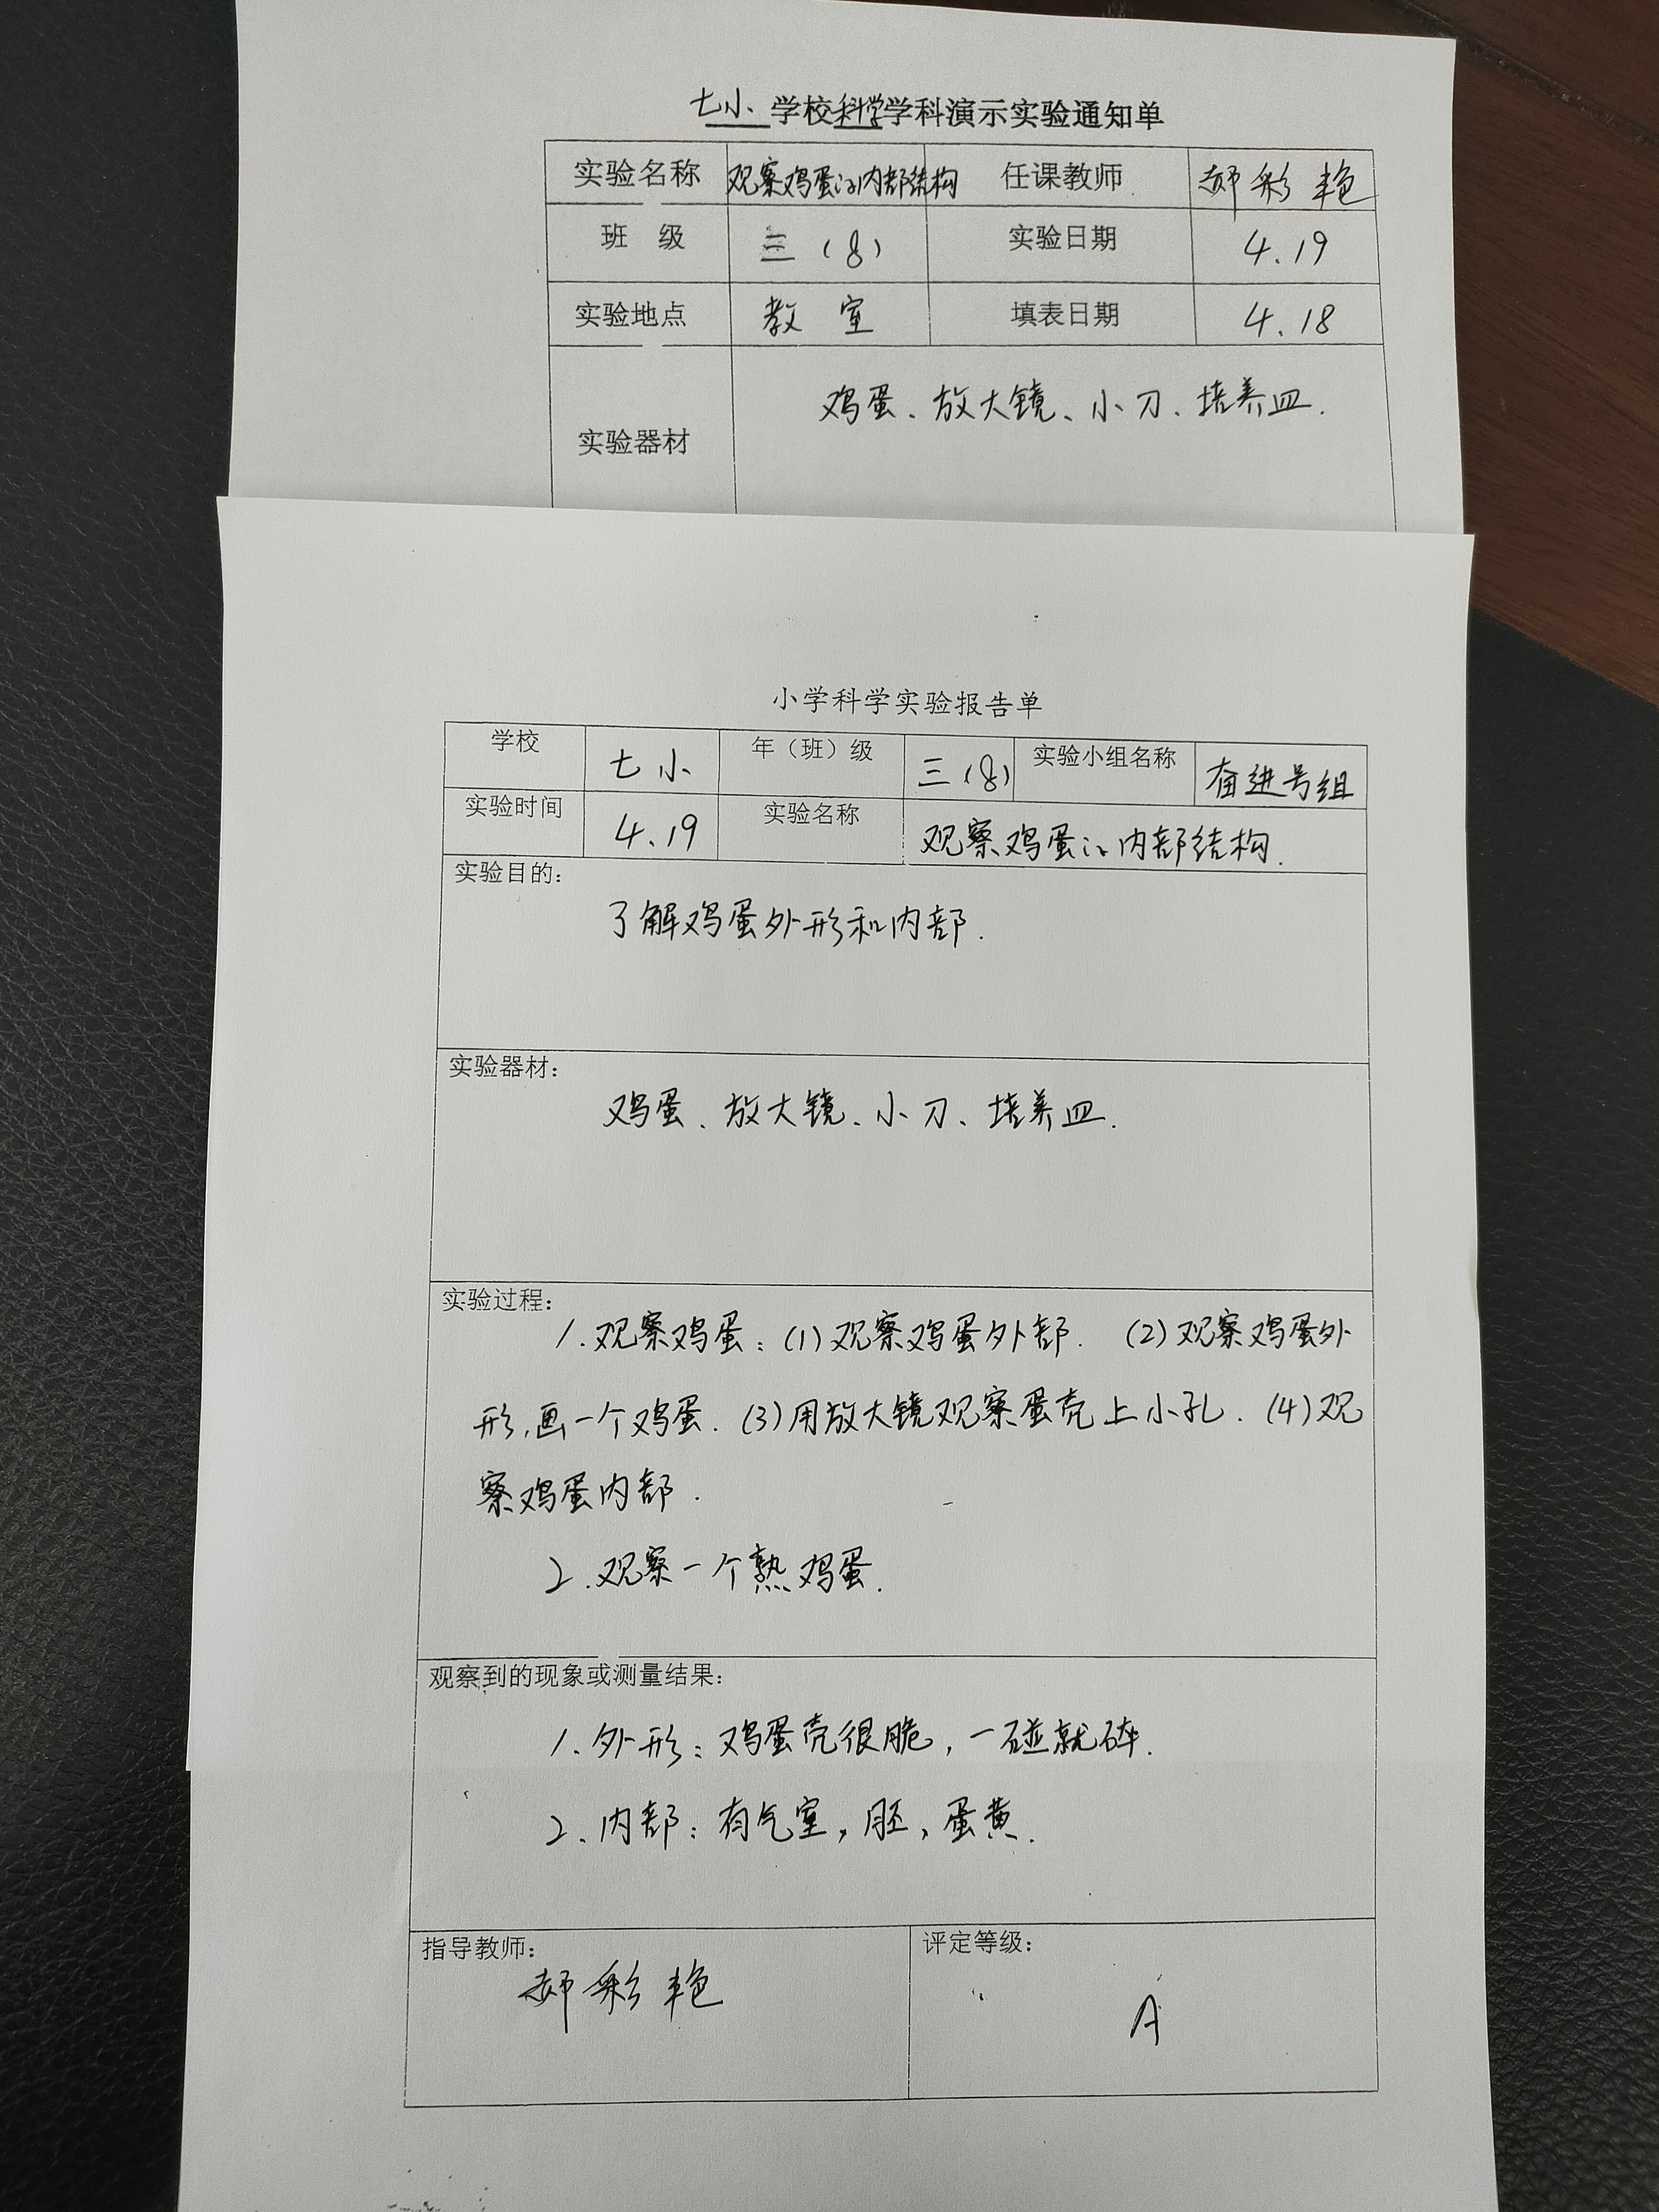 七小 学校科学学科演示实验通知单
实验名称 观察鸡蛋的内部结构 任课教师 郝彩艳
班 级 三（8） 实验日期 4.19
实验地点 教 室 填表日期 4.18
实验器材 鸡蛋、放大镜、小刀、培养皿.
小学科学实验报告单
学校 七小 年（班）级 三（8） 实验小组名称 奋进号组
实验时间 4.19 实验名称 观察鸡蛋的内部结构.
实验目的：
了解鸡蛋外形和内部.
实验器材：
鸡蛋、放大镜、小刀、培养皿.
实验过程：
1.观察鸡蛋：(1)观察鸡蛋外部. (2)观察鸡蛋外
形,画一个鸡蛋. (3)用放大镜观察蛋壳上小孔. (4)观
察鸡蛋内部.
2.观察一个熟鸡蛋.
观察到的现象或测量结果：
1.外形：鸡蛋壳很脆，一碰就碎.
2.内部：有气室，胚，蛋黄.
指导教师： 郝彩艳 评定等级： A